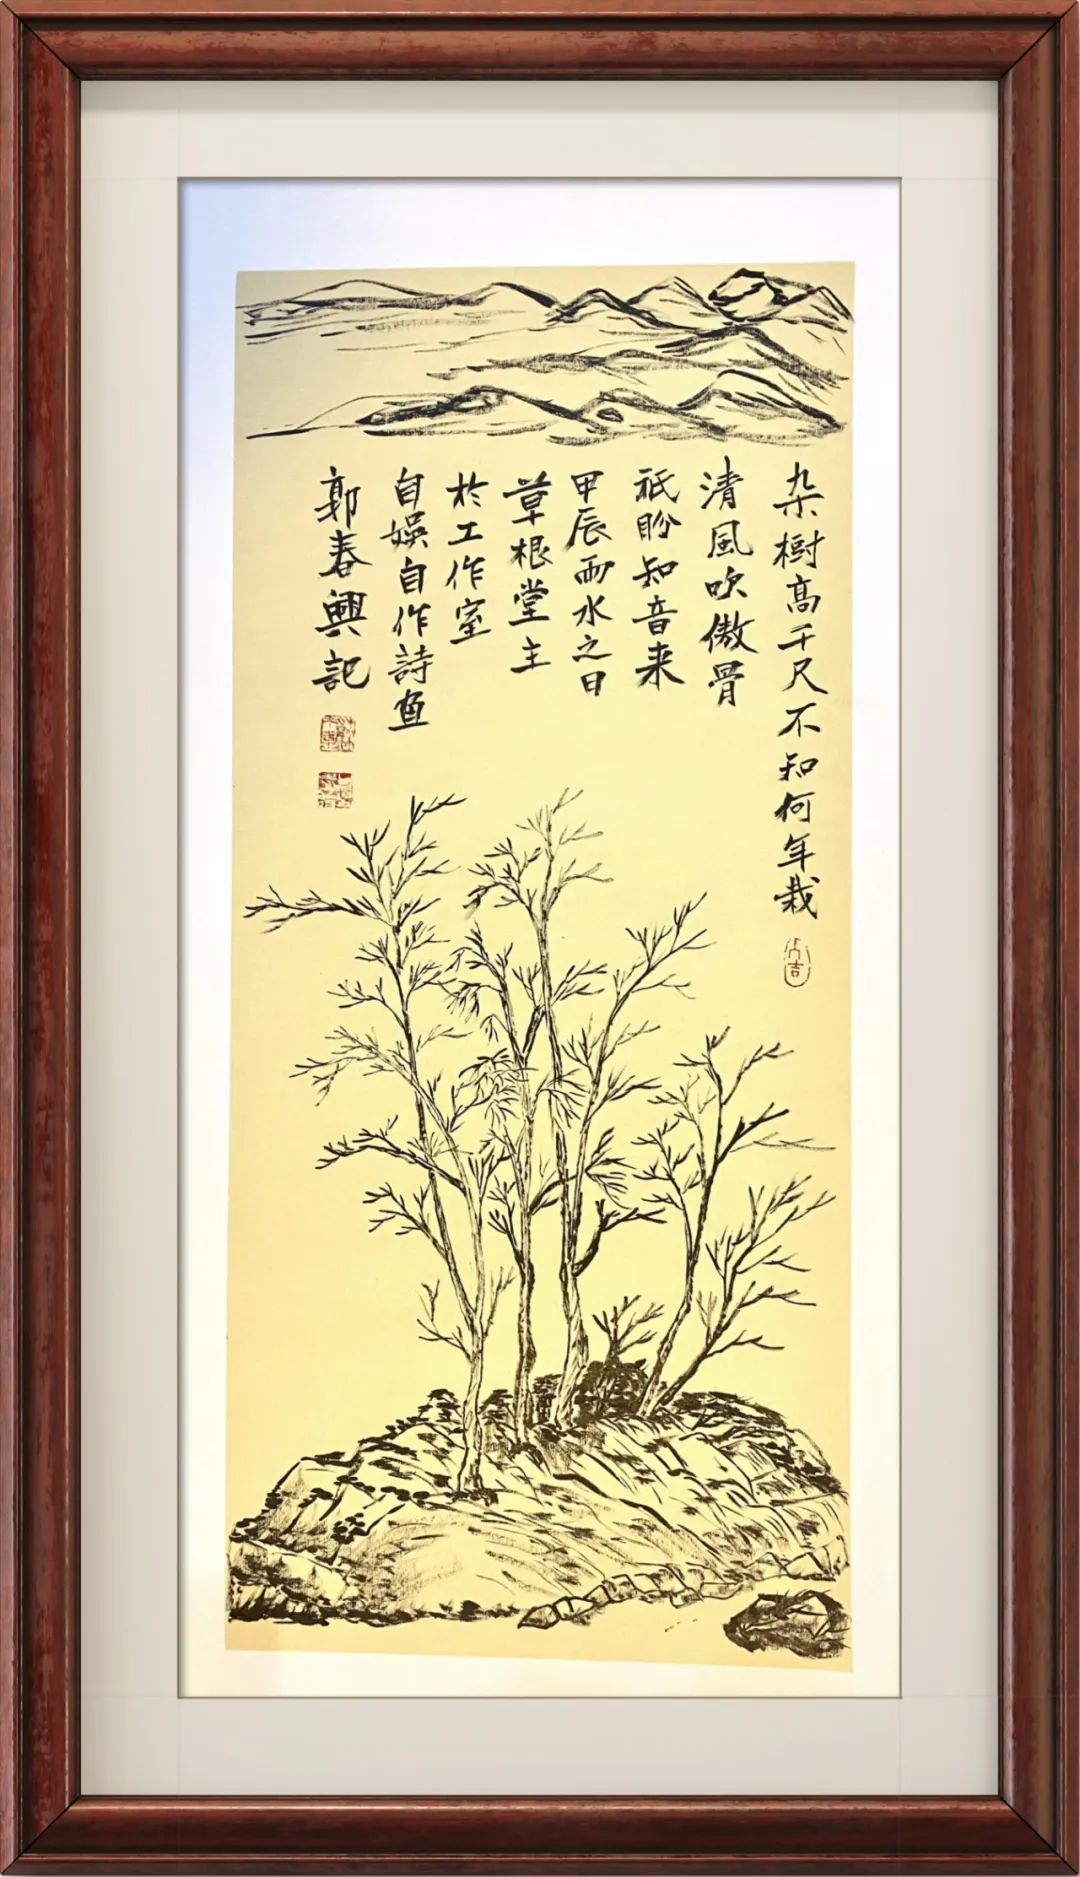 杂樹高千尺不知何年栽
清風吹傲骨
祇盼知音来
甲辰雨水之日
草根堂主
於工作室
自娱自作詩画
郭春興記